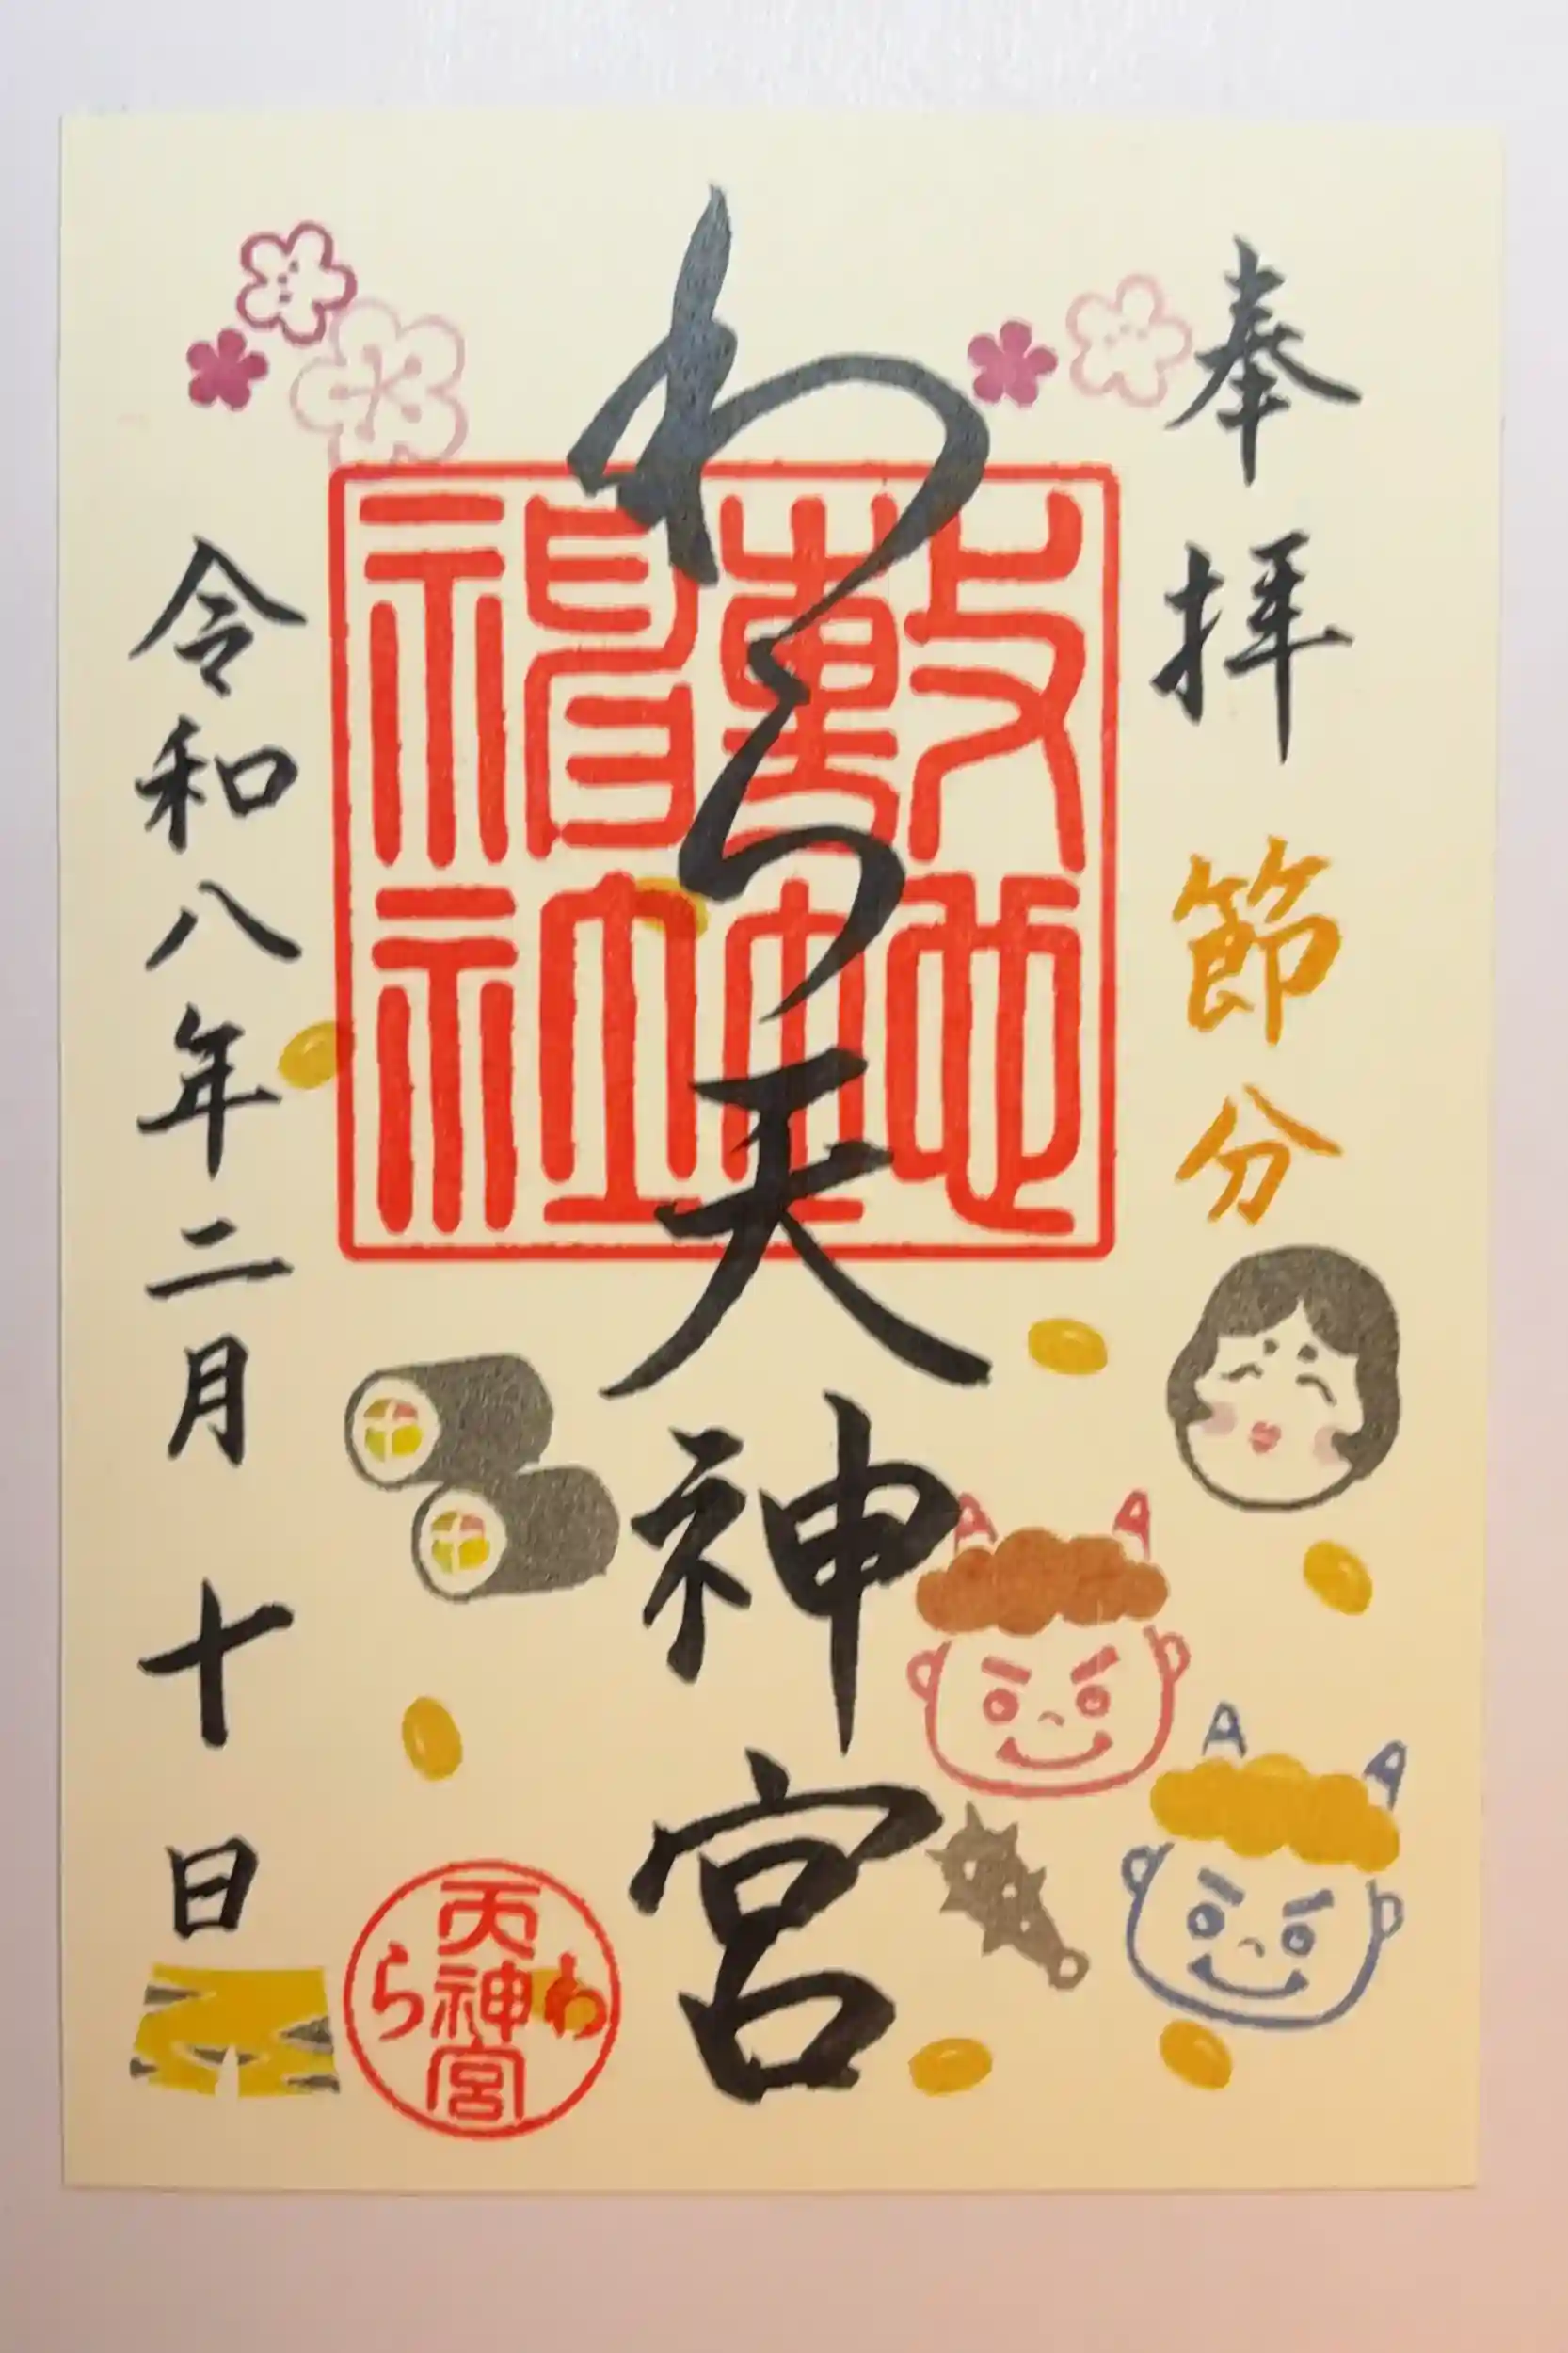 奉拝
節分
わら天神宮
敷地神社
令和八年二月十日
わら天神宮